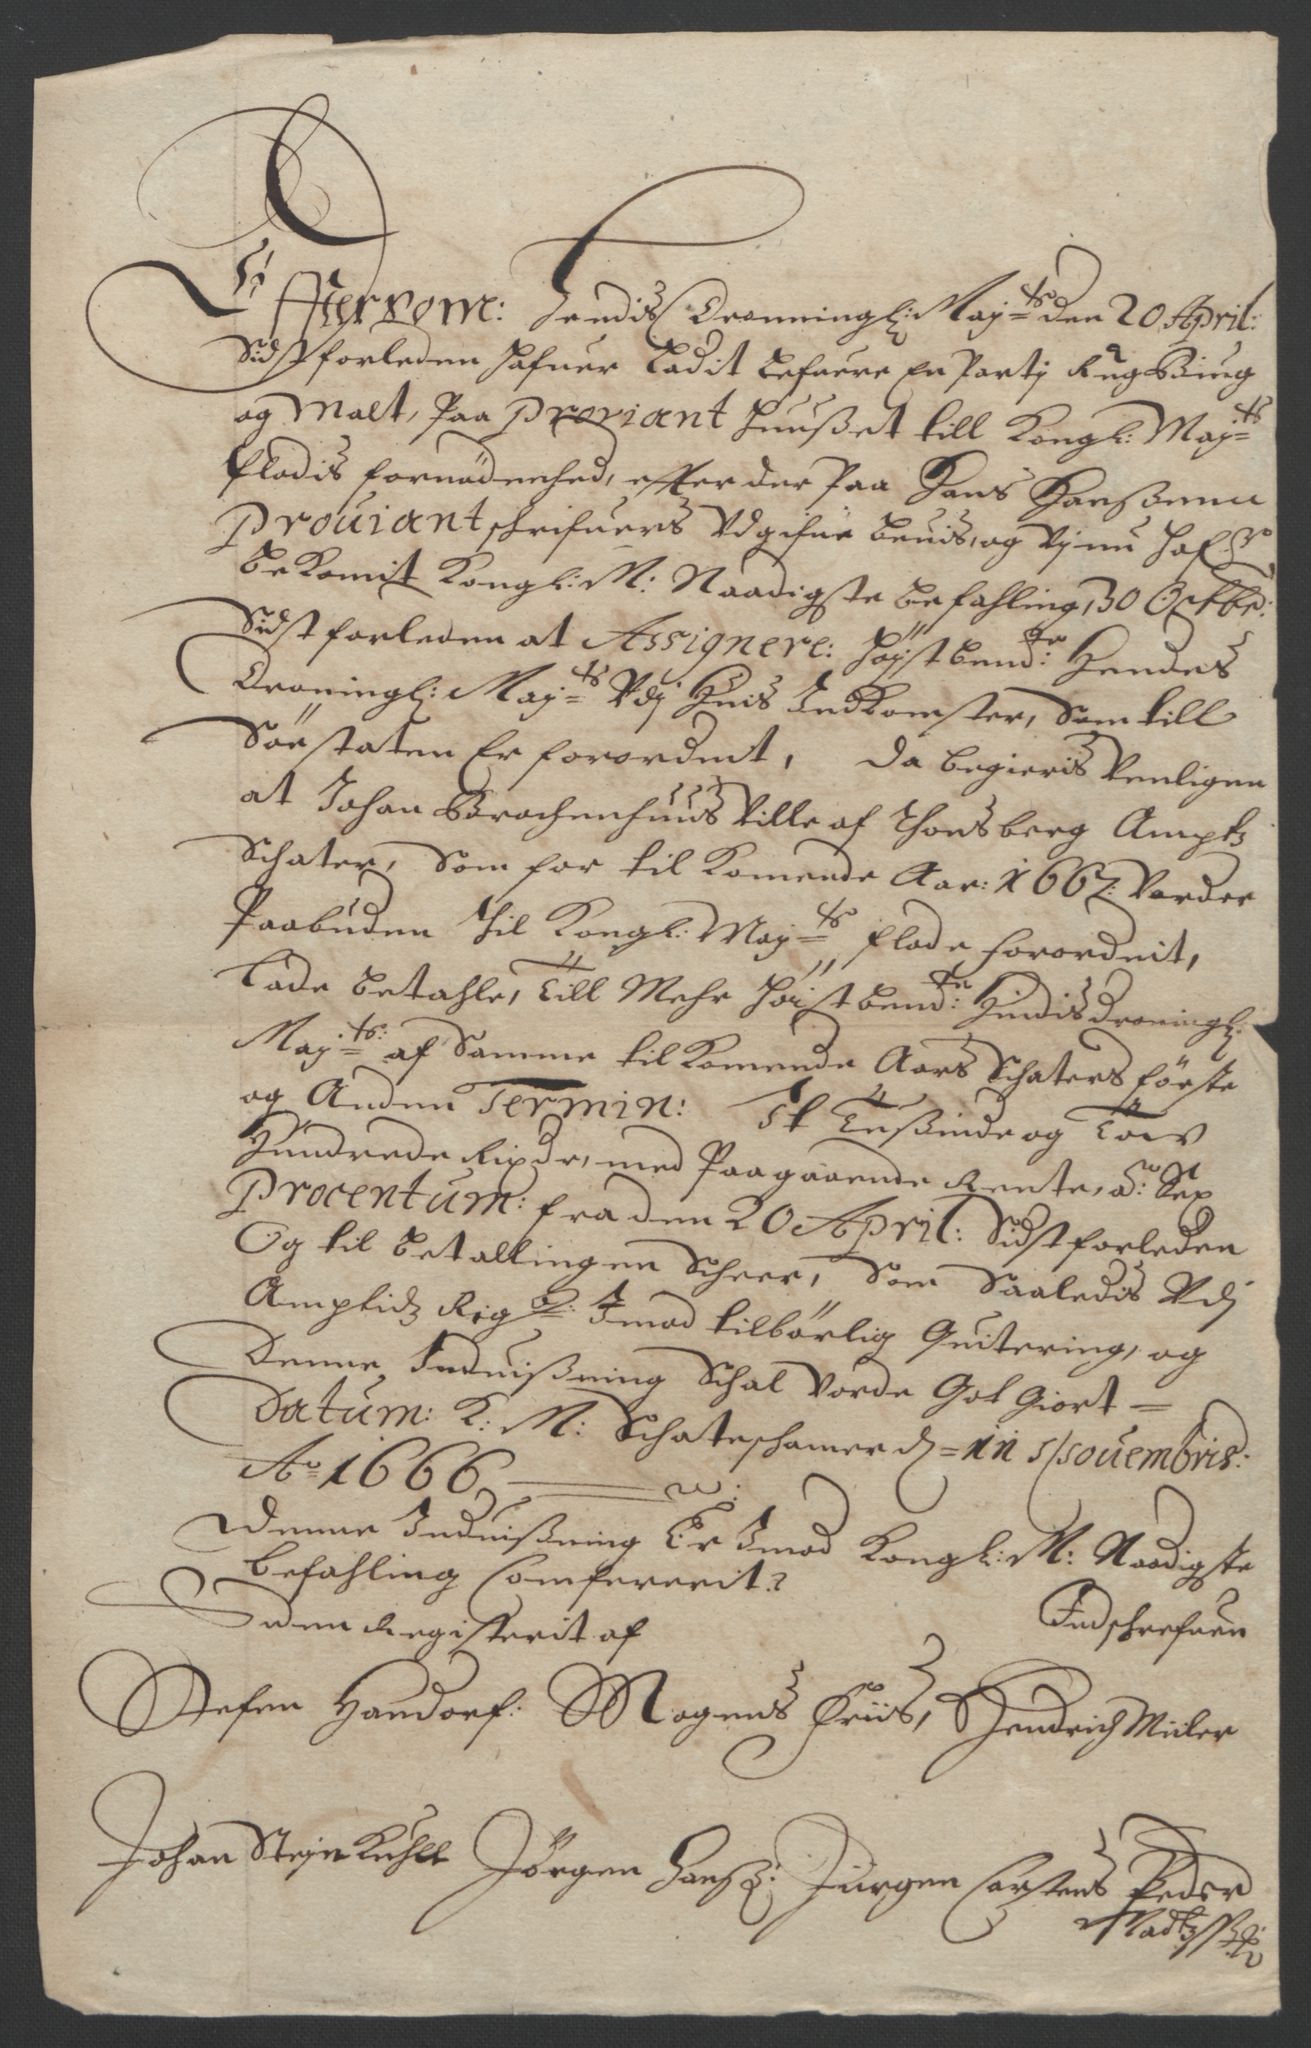 Effterkom: Hendis Dronningl: May:ts den 20 April:
Sidstforleden hafuer Ladit Lefuere En Partj Rug Biug
og Malt, Paa Proviant huußet till Kongl: May:ts
Flodis fornödenhed, effter der Paa Hans Hanßenn
Prouiantschrifuers Vdgifne beuis, og Vj nu haf:r
bekomit Kongl: M: Naadigste befahling, 30 Octbr:
Sidstforleden at Assignere: höjstbend:te Hendes
Droningl: May:ts Vdj huis Indkomster, Som till
Söestaten Er forordnt, da begieris Venligen
at Johan Brochenhuus Ville af Thonsberg Amptz
Schater, Som for tilkomende Aar: 1667: Vorder
Paabuden til Kongl: May:ts flode forordnit,
Lade betahle, till Mehr höistbend:te Hindis Droningl:
May:ts: af Samme tilkomende Aars Schaters förste
og Anden Termin: Et Tußinde og Toe
Hundrede Rixdr, med Paagaaende Rente, a: Sex
Procentum: fra den 20 April: Sidstforleden
Og til betallingen Scheer, Som Saaledis Vdj
Amptidz Rigsk: Imod tilbörlig Quitering, og
Denne Induißning Schal Vorde Got Giort —
Datum: K: M: Schatschamer d = 12 Nouembris:
Ao 1666
Denne Induißning Er Imod Kongl: M: Naadigste
befahling Confererit?
Indschrefuen
Vden Registerit af
Stefen Handorf: Mogens Friis, Hendrich Müller
Johan SteinKuhll Jörgen Hanß: Jürgen Carstens Peder
Madtzß: